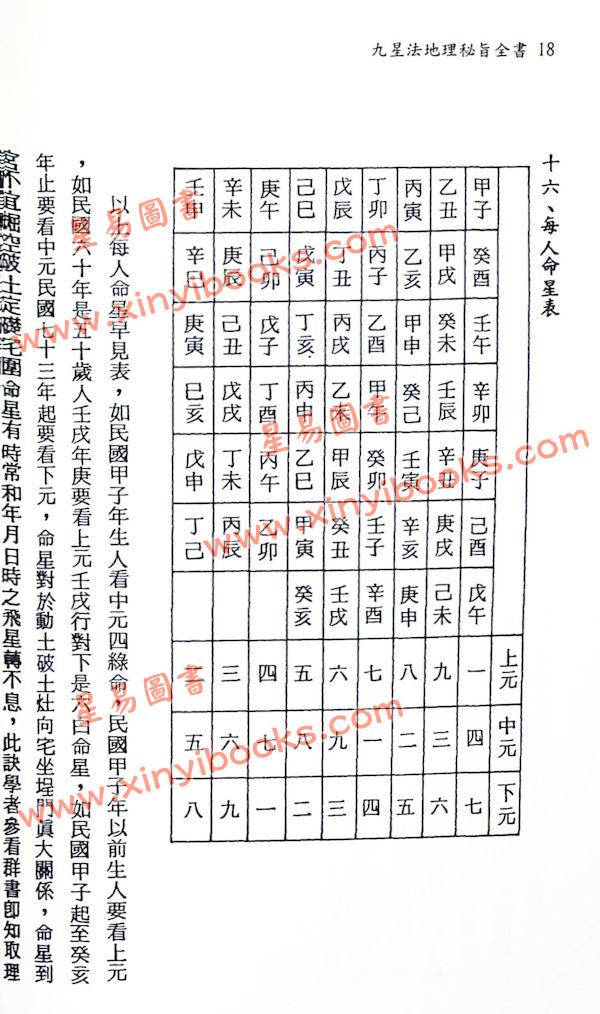 九星法地理秘旨全書 18
十六、每人命星表
上元 中元 下元
甲子 癸酉 壬午 辛卯 庚子 己酉 戊午 一 四 七
乙丑 甲戌 癸未 壬辰 辛丑 庚戌 己未 九 三 六
丙寅 乙亥 甲申 癸己 壬寅 辛亥 庚申 八 二 五
丁卯 丙子 乙酉 甲午 癸卯 壬子 辛酉 七 一 四
戊辰 丁丑 丙戌 乙未 甲辰 癸丑 壬戌 六 九 三
己巳 戊寅 丁亥 丙申 乙巳 甲寅 癸亥 五 八 二
庚午 己卯 戊子 丁酉 丙午 乙卯 四 七 一
辛未 庚辰 己丑 戊戌 丁未 丙辰 三 六 九
壬申 辛巳 庚寅 巳亥 戊申 丁己 二 五 八
以上每人命星早見表，如民國甲子年生人看中元四綠命，民國甲子年以前生人要看上元
，如民國六十年是五十歲人壬戌年庚要看上元壬戌行對下是六白命星，如民國甲子起至癸亥
年止要看中元民國七十三年起要看下元，命星對於動土破土灶向宅坐埕門眞大關係，命星到
命星有時常和年月日時之飛星轉不息，此訣學者參看群書卽知取理
星易圖書
www.xinyibooks.com
星易圖書
www.xinyibooks.com
星易圖書
www.xinyibooks.com